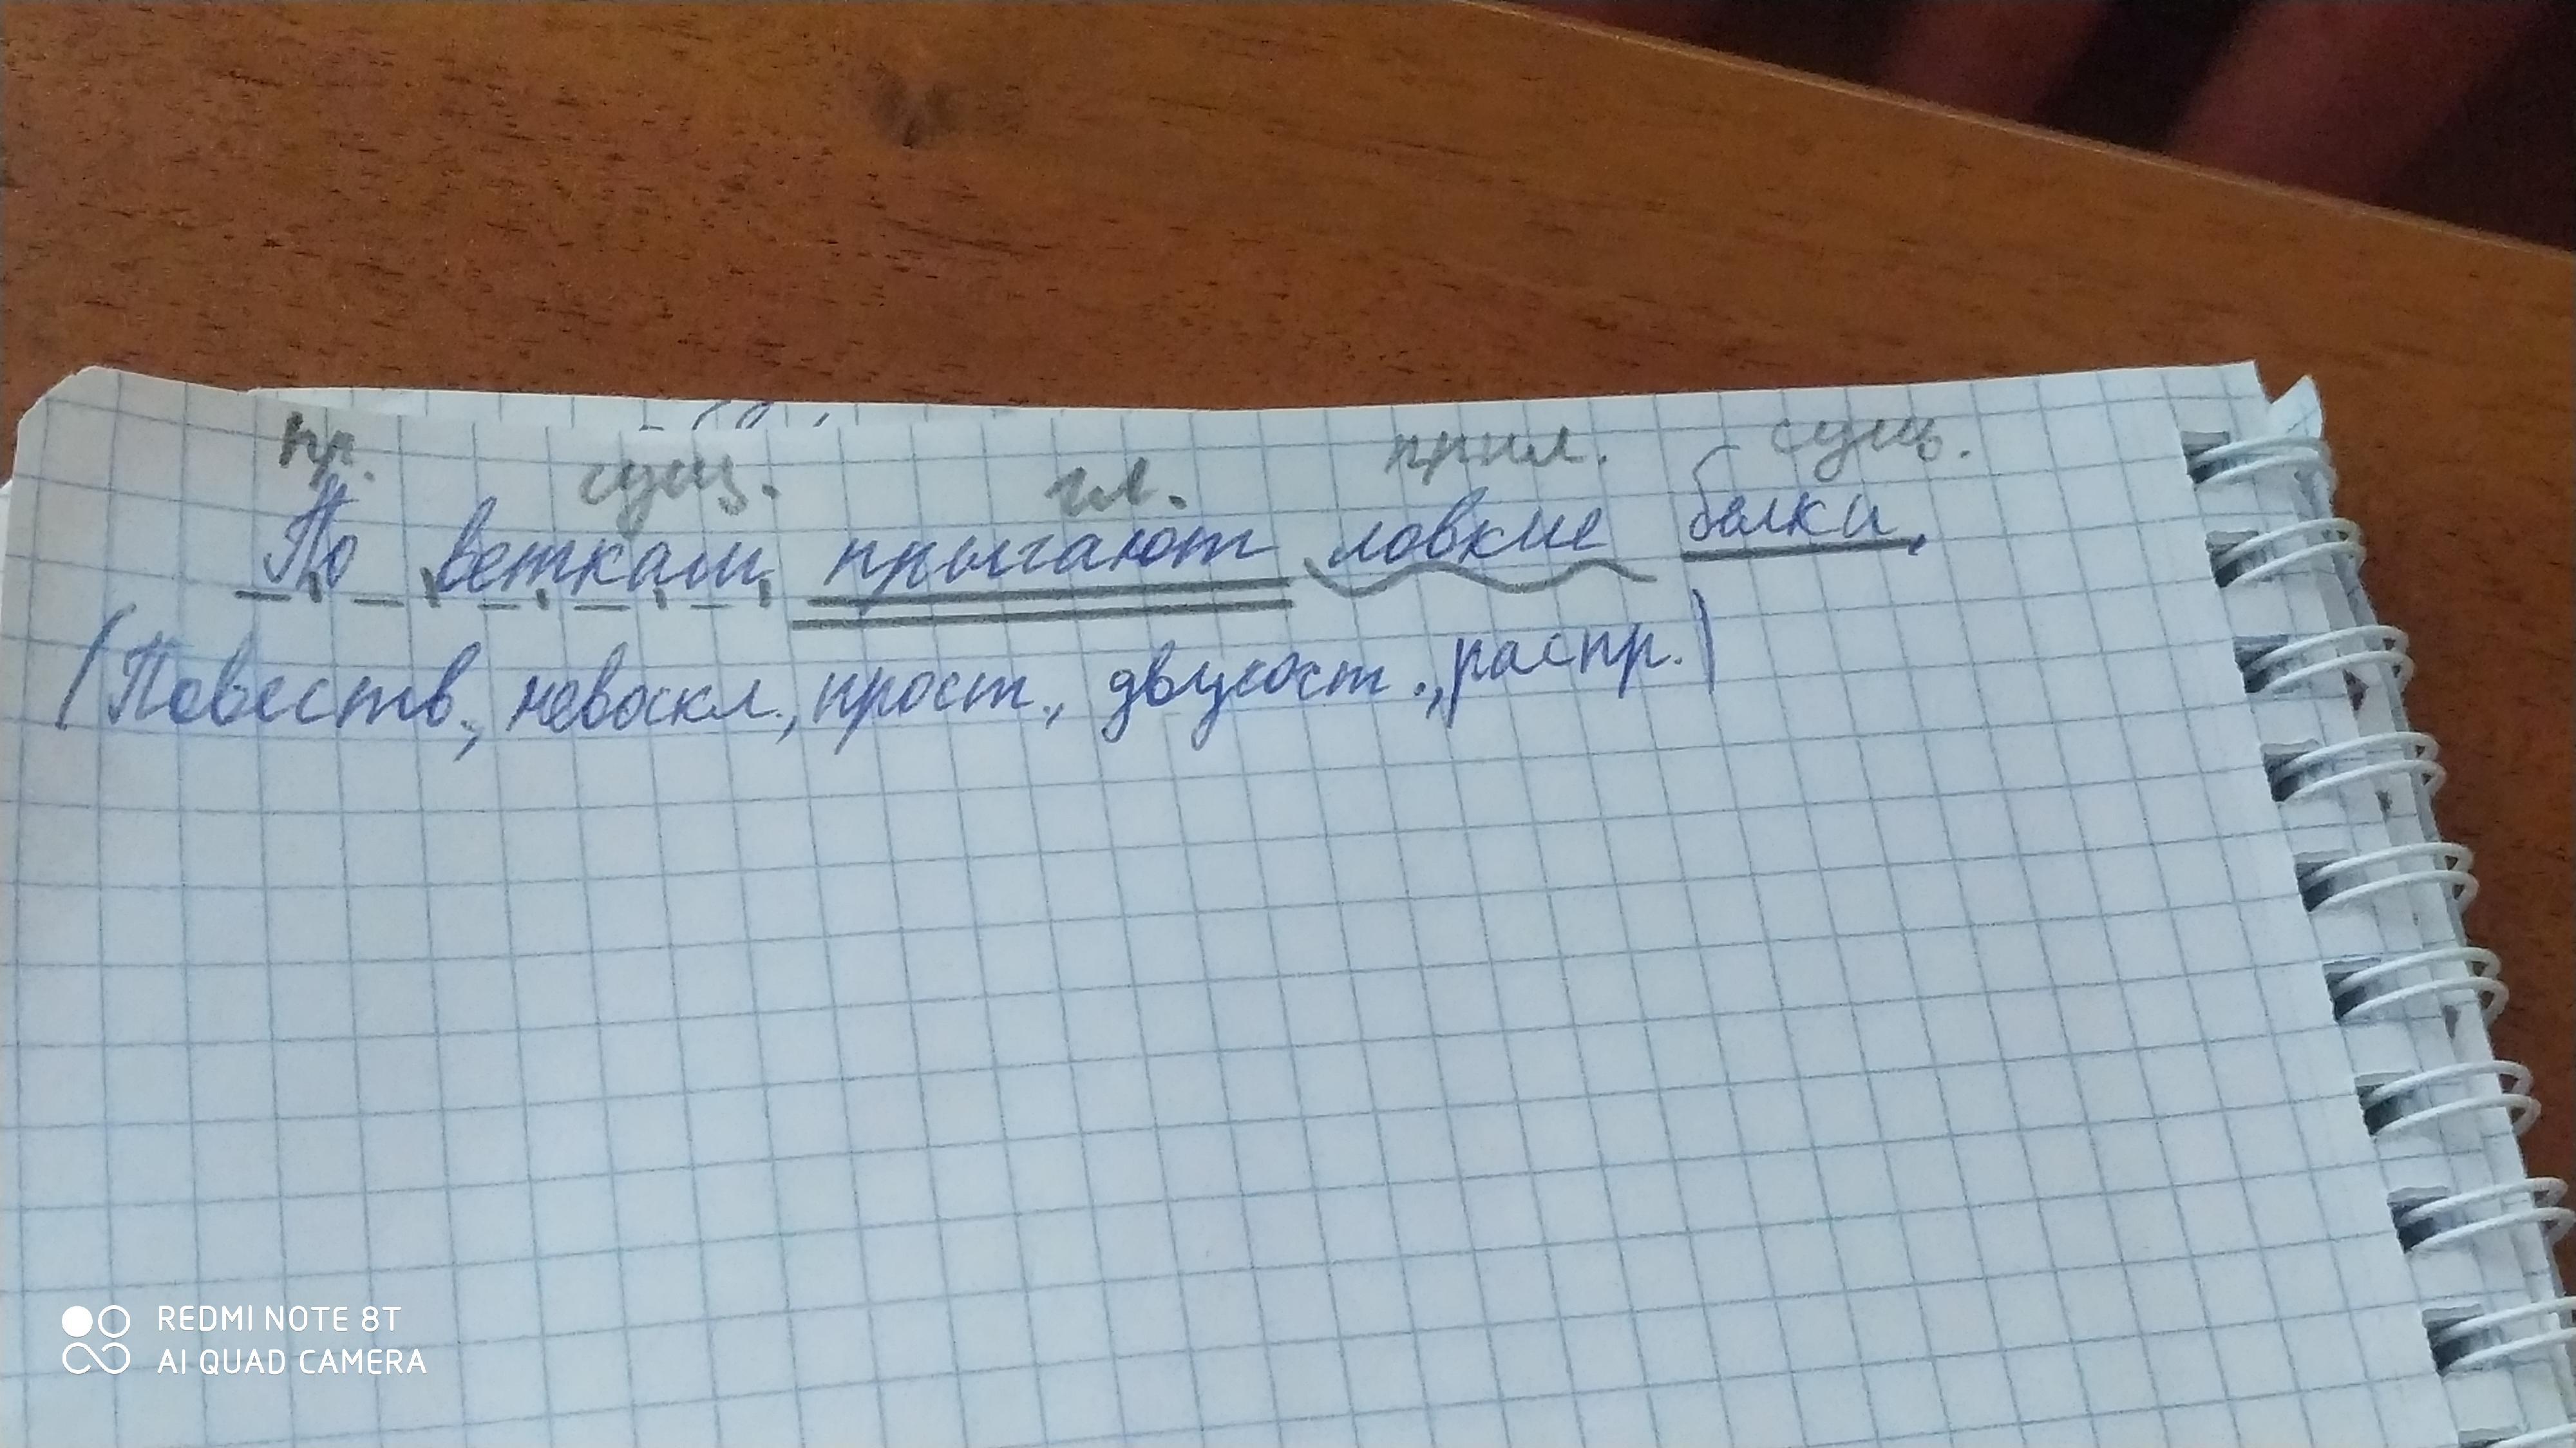 пр. сущ. гл. прил. сущ.
По веткам прыгают ловкие белки.
(Повеств., невоскл., прост., двусост., распр.)
REDMI NOTE 8T
AI QUAD CAMERA